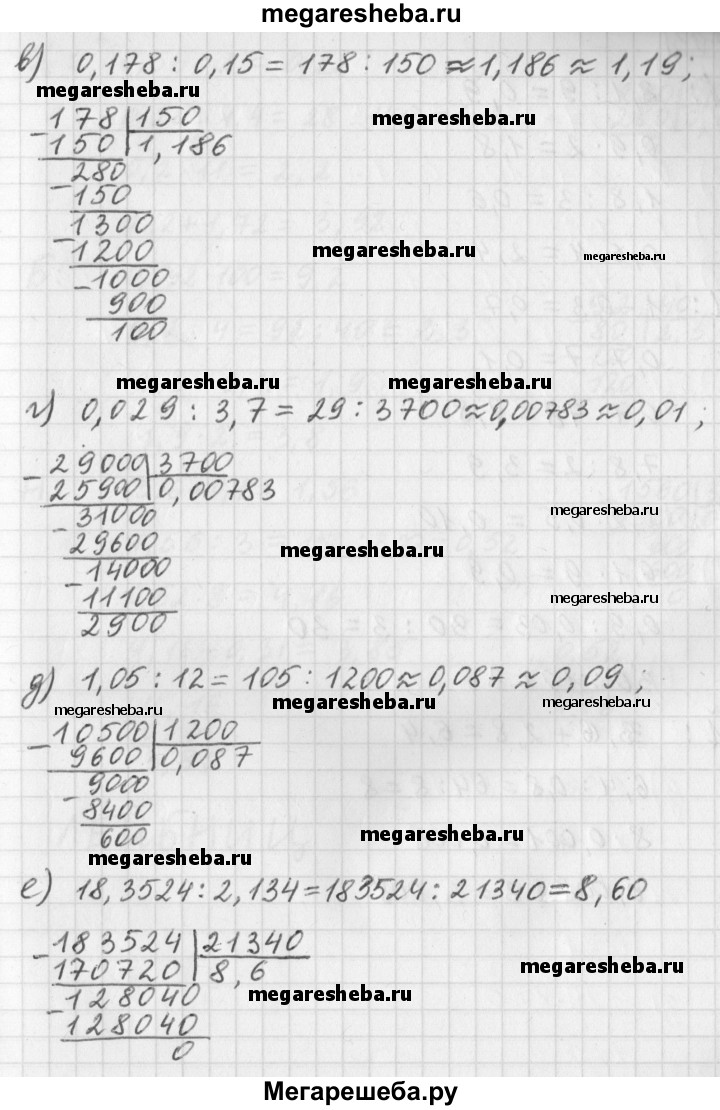 megaresheba.ru
в) 0,178 : 0,15 = 178 : 150 ≈ 1,186 ≈ 1,19;
megaresheba.ru
megaresheba.ru
- 178 | 150
150 | 1,186
280
- 150
1300
- 1200
megaresheba.ru
megaresheba.ru
- 1000
900
100
megaresheba.ru
megaresheba.ru
г) 0,029 : 3,7 = 29 : 3700 ≈ 0,00783 ≈ 0,01;
- 29000 | 3700
25900 | 0,00783
- 31000
megaresheba.ru
29600
megaresheba.ru
- 14000
11100
megaresheba.ru
2900
д) 1,05 : 12 = 105 : 1200 ≈ 0,087 ≈ 0,09;
megaresheba.ru
megaresheba.ru
megaresheba.ru
- 10500 | 1200
9600 | 0,087
- 9000
8400
600
megaresheba.ru
megaresheba.ru
е) 18,3524 : 2,134 = 183524 : 21340 = 8,60
- 183524 | 21340
170720 | 8,6
megaresheba.ru
- 128040
megaresheba.ru
128040
0
Мегарешеба.ру